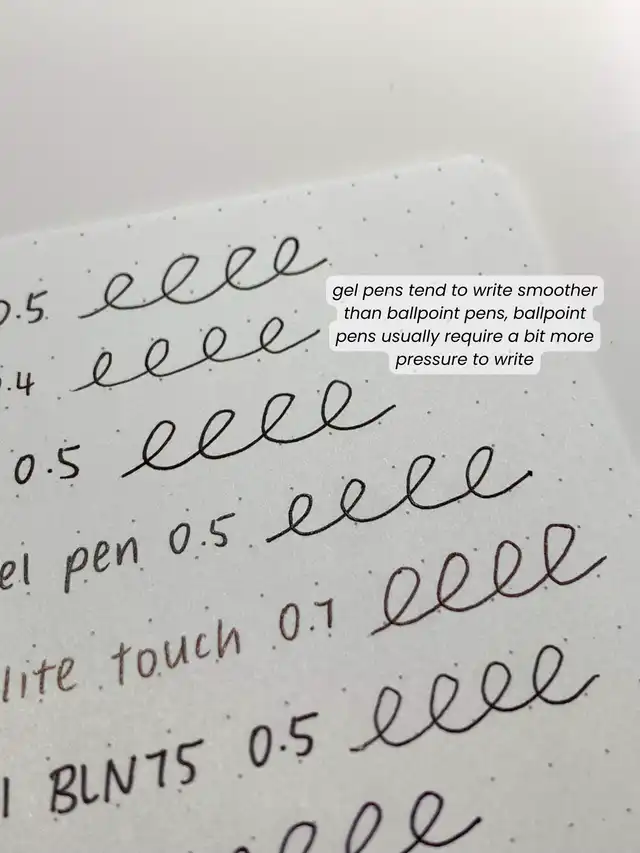 0.5 eeee
gel pens tend to write smoother
than ballpoint pens, ballpoint
pens usually require a bit more
pressure to write
.4 eeee
0.5 eeee
el pen 0.5 eeee
lite touch 0.7 eeee
l BLN75 0.5 eeee
eee